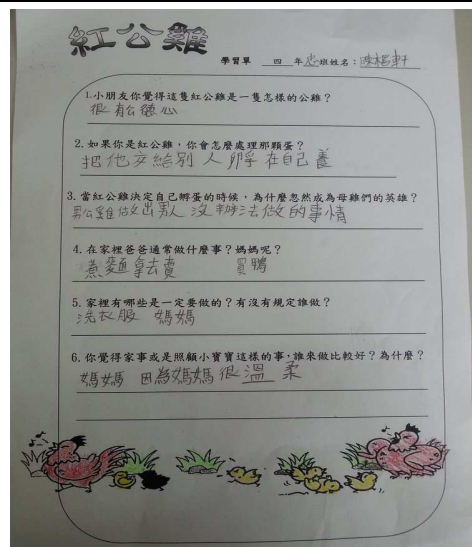 紅公雞
學習單 四 年忠班姓名:陳楷軒
1.小朋友你覺得這隻紅公雞是一隻怎樣的公雞?
很有公德心
2.如果你是紅公雞,你會怎麼處理那顆蛋?
把他交給別人孵在自己養
3.當紅公雞決定自己孵蛋的時候,為什麼忽然成為母雞們的英雄?
公雞做出男人沒辦法做的事情
4.在家裡爸爸通常做什麼事?媽媽呢?
煮麵拿去賣 買鴨
5.家裡有哪些是一定要做的?有沒有規定誰做?
洗衣服 媽媽
6.你覺得家事或是照顧小寶寶這樣的事,誰來做比較好?為什麼?
媽媽 因為媽媽很溫柔